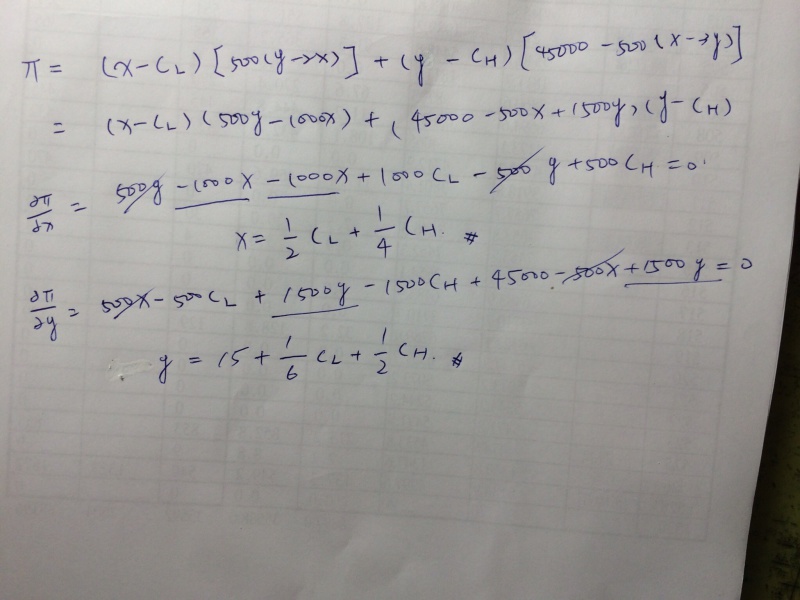 π = (x-C_L)[500(y-2x)] + (y-C_H)[45000-500(x-3y)]
= (x-C_L)(500y-1000x) + (45000-500x+1500y)(y-C_H)
∂π/∂x = 500y-1000x-1000x+1000C_L-500y+500C_H=0.
x = 1/2 C_L + 1/4 C_H. #
∂π/∂y = 500x-500C_L+1500y-1500C_H+45000-500x+1500y=0
y = 15 + 1/6 C_L + 1/2 C_H. #